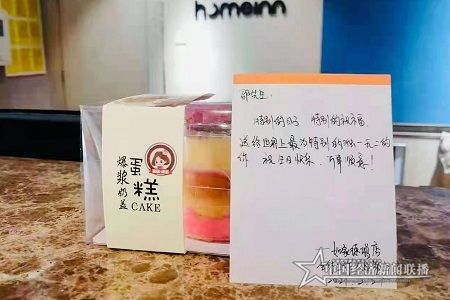 homeinn
爆浆奶盖
蛋糕
CAKE
特别的日子 特别的祝福
送给世界上最为特别的独一无二的
你 祝生日快乐 万事顺意!
中国经济新闻联播